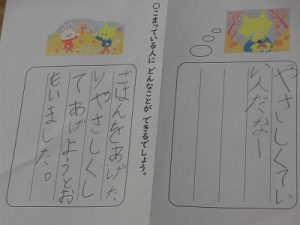 やさしくてい
い人だなー
○こまっている人に どんなことが できるでしょう。
ごはんをあげた
りやさしくし
てあげようとお
もいました。